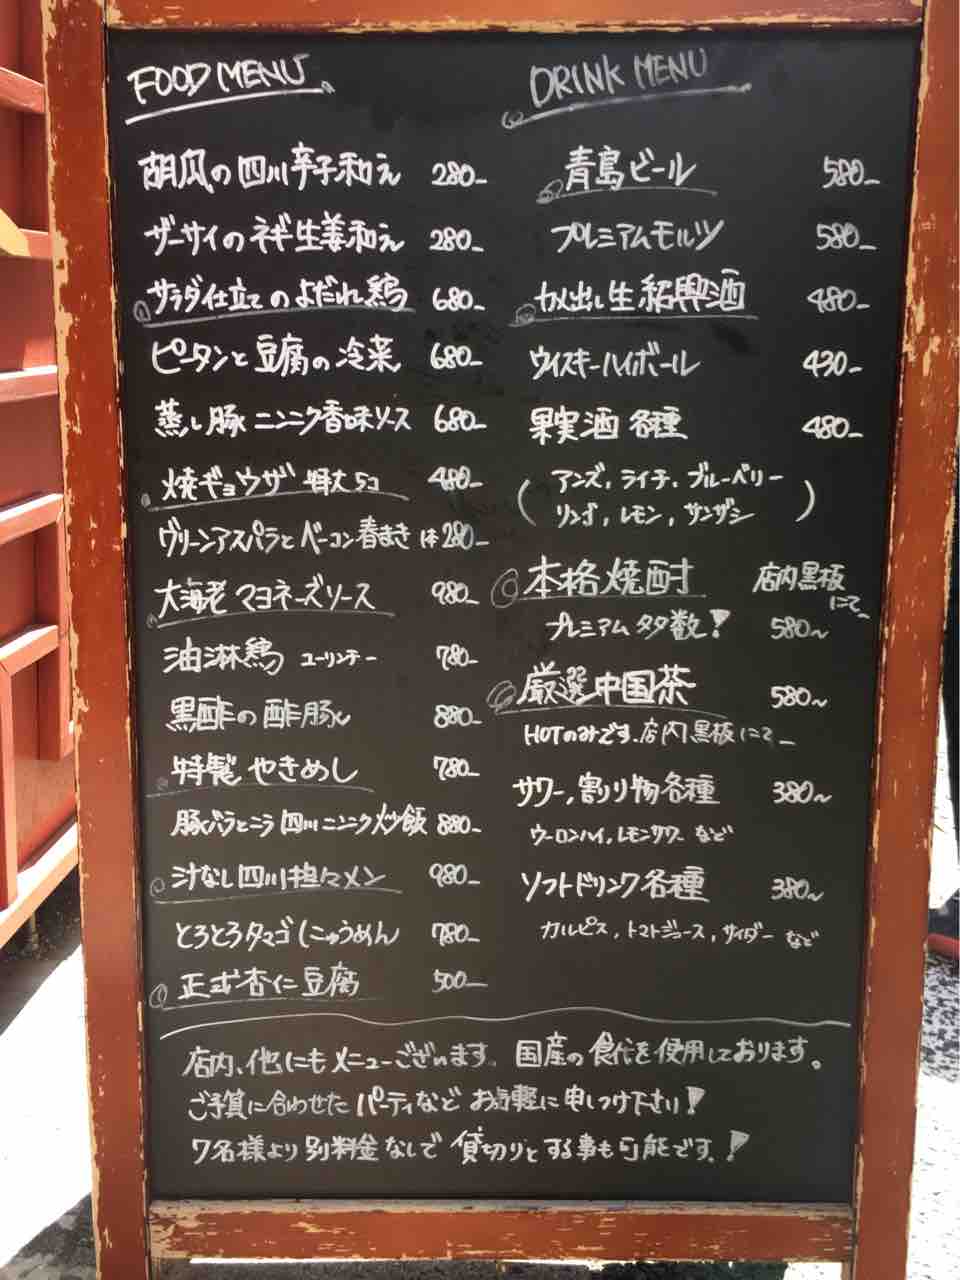 FOOD MENU
胡瓜の四川辛子和え 280-
ザーサイのネギ生姜和え 280-
サラダ仕立てのよだれ鶏 680-
ピータンと豆腐の冷菜 680-
蒸し豚 ニンニク香味ソース 680-
焼ギョウザ 特大5コ 480-
グリーンアスパラとベーコン春まき 1本280-
大海老マヨネーズソース 980-
油淋鶏 ユーリンチー 780-
黒酢の酢豚 880-
特製やきめし 780-
豚バラとニラ四川ニンニク〆ツ飯 880-
汁なし四川担々メン 980-
とろとろタマゴにゅうめん 780-
正式杏仁豆腐 500-
DRINK MENU
青島ビール 580-
プレミアムモルツ 580-
かめ出し生紹興酒 480-
ウイスキーハイボール 430-
果実酒 各種 480-
(アンズ, ライチ, ブルーベリー
リンゴ, レモン, サンザシ)
本格焼酎 店内黒板
にて-
プレミアム多数! 580~
厳選中国茶 580~
HOTのみです.店内黒板にて-
サワー, 割り物各種 380~
ウーロンハイ, レモンサワー など
ソフトドリンク各種 380~
カルピス, トマトジュース, サイダー など
店内、他にもメニューございます。国産の食材を使用しております。
ご予算に合わせたパーティなどお気軽に申しつけ下さい!
7名様より別料金なしで貸切りとする事も可能です.!